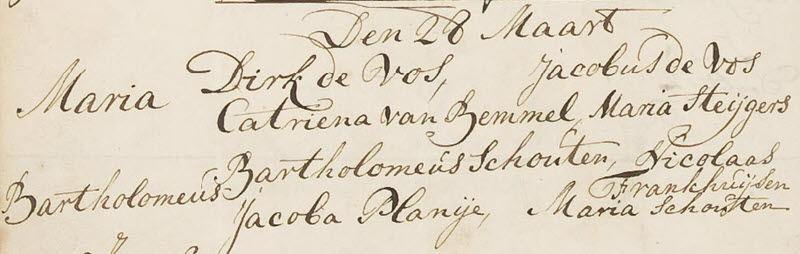 Den 28 Maart
Maria Dirk de Vos, Jacobus de Vos
Catriena van Bemmel, Maria Steijgers
Bartholomeus Bartholomeus Schouten, Nicolaas Frankhuijsen
Jacoba Planije, Maria Schouten